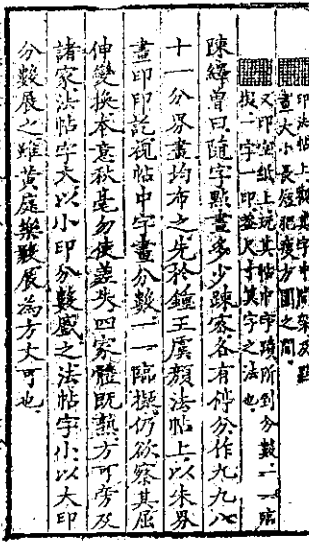 印法帖上觀其字中間架及點
畫大小長短肥瘦方圓之間
又印空紙上玩其帖中字蹟所到分數一一臨
擬一字一印盈尺寸其字之法也
陳繹曾曰隨字點畫多少踈密各有停分作九九八
十一分界畫均布之先於鍾王虞顏法帖上以朱界
畫印印訖視帖中字畫分數一一臨擬仍欲察其屈
伸變換本意秋毫勿使差失四家體既熟方可旁及
諸家法帖字大以小印分數蹙之法帖字小以大印
分數展之雖黄庭樂毅展為方丈可也